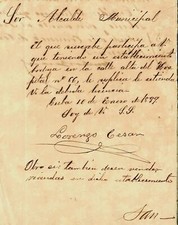 Sor Alcalde Municipal
El que suscribe participa á V.
que teniendo un establecimiento
en la calle alta del Hos
pital nº 66, le suplica le estienda
la debida licencia.
10 de Enero de 1899
Soy de V. S. S.
Lorenzo Cesar
Otro sí tambien desea vender
en dicho establecimiento